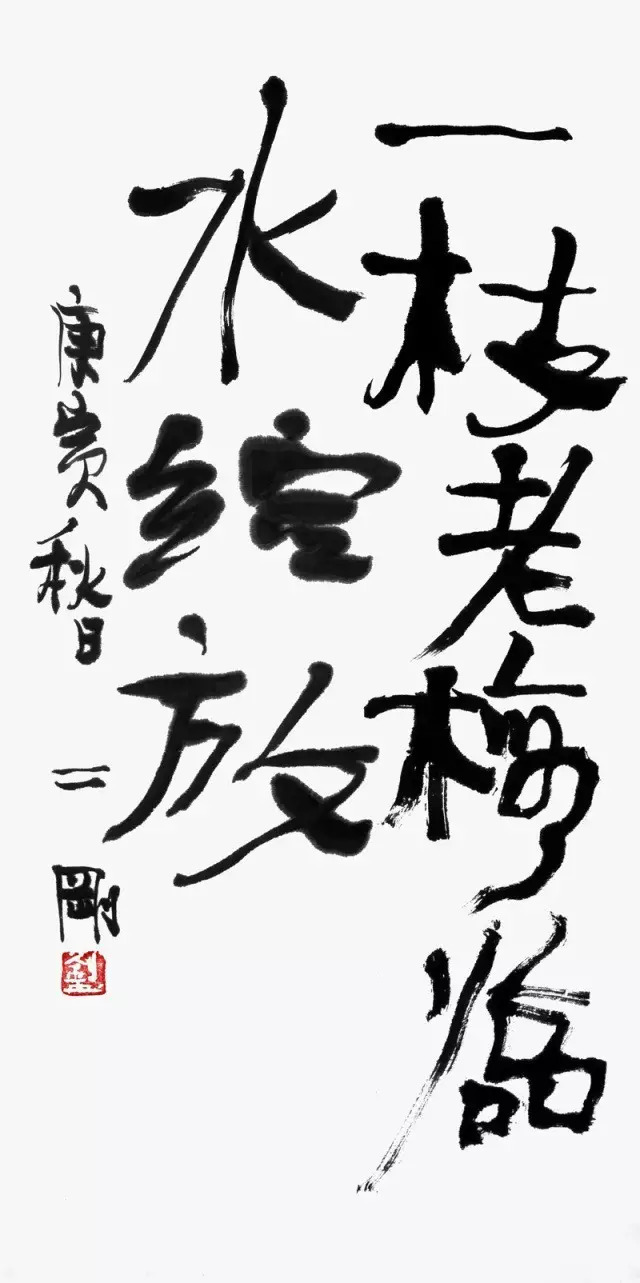 一枝老梅临
水绽放
庚寅秋日 二剛
劉